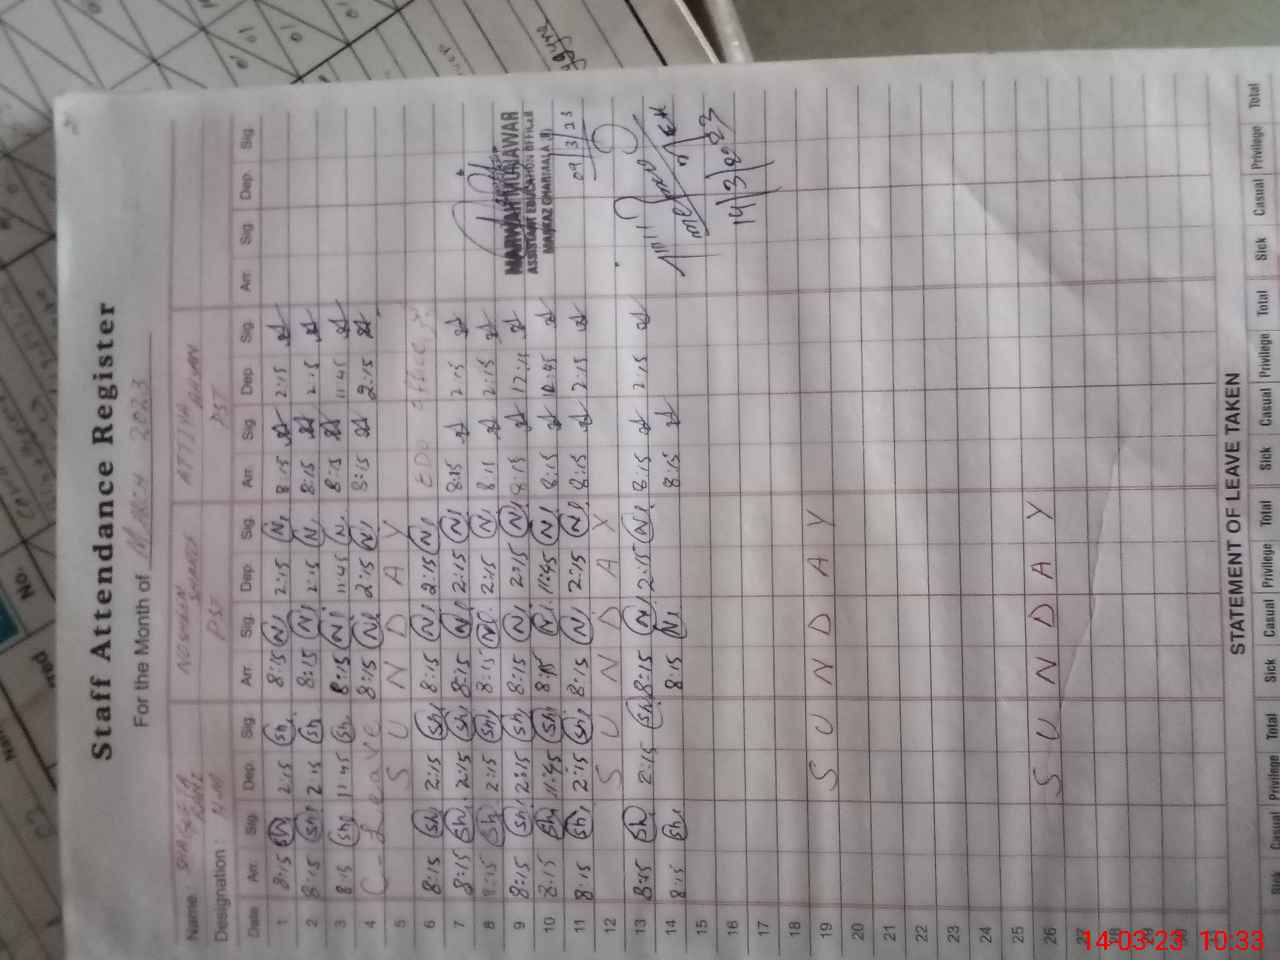 Staff Attendance Register
For the Month of March 2023
Name: NOSHEEN ATTIYA
Designation: H.M PST PST
Date Arr. Sig. Dep. Sig. Arr. Sig. Dep. Sig. Arr. Sig. Dep. Sig. Arr. Sig. Dep. Sig.
1 8:15 Sh, 2:15 Sh, 8:15 N, 2:15 N, 8:15 2:15
2 8:15 Sh, 2:15 Sh, 8:15 N, 2:15 N, 8:15 2:15
3 8:15 Sh, 11:45 Sh, 8:15 N, 11:45 N, 8:15 11:45
4 C-Leave 8:15 N, 2:15 N, 8:15 2:15
5 S U N D A Y
6 8:15 Sh, 2:15 Sh, 8:15 N, 2:15 N, office
7 8:15 Sh, 2:15 Sh, 8:15 N, 2:15 N, 8:15 2:15
8 8:15 Sh, 2:15 Sh, 8:15 N, 2:15 N, 8:15 2:15
9 8:15 Sh, 2:15 Sh, 8:15 N, 2:15 N, 8:15
10 8:15 Sh, 11:45 Sh, 8:15 N, 11:45 N, 8:15
11 8:15 Sh, 2:15 Sh, 8:15 N, 2:15 N, 8:15 2:15
12 S U N D A Y
13 8:15 Sh, 2:15 Sh, 8:15 N, 2:15 N, 8:15 2:15
14 8:15 Sh, 8:15 N, 8:15
15
16
17
18
19 S U N D A Y
20
21
22
23
24
25
26 S U N D A Y
27
28
29
30
MUNAWAR
ASSISTANT EDUCATION OFFICER
MARKAZ
09/3/23
14/3/2023
STATEMENT OF LEAVE TAKEN
Sick Casual Privilege Total Sick Casual Privilege Total Sick Casual Privilege Total Sick Casual Privilege Total
No.
14-03-23 10:33